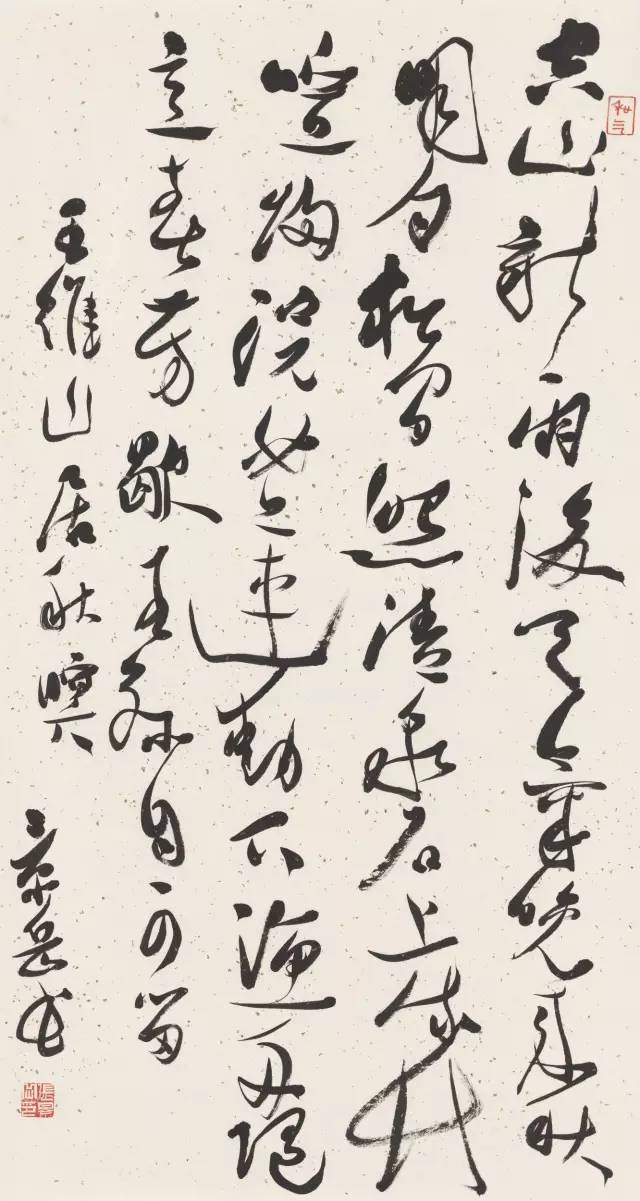 空山新雨後天氣晚來秋
明月松間照清泉石上流竹
喧歸浣女蓮動下漁舟隨
意春芳歇王孫自可留
王維山居秋暝 景岳書